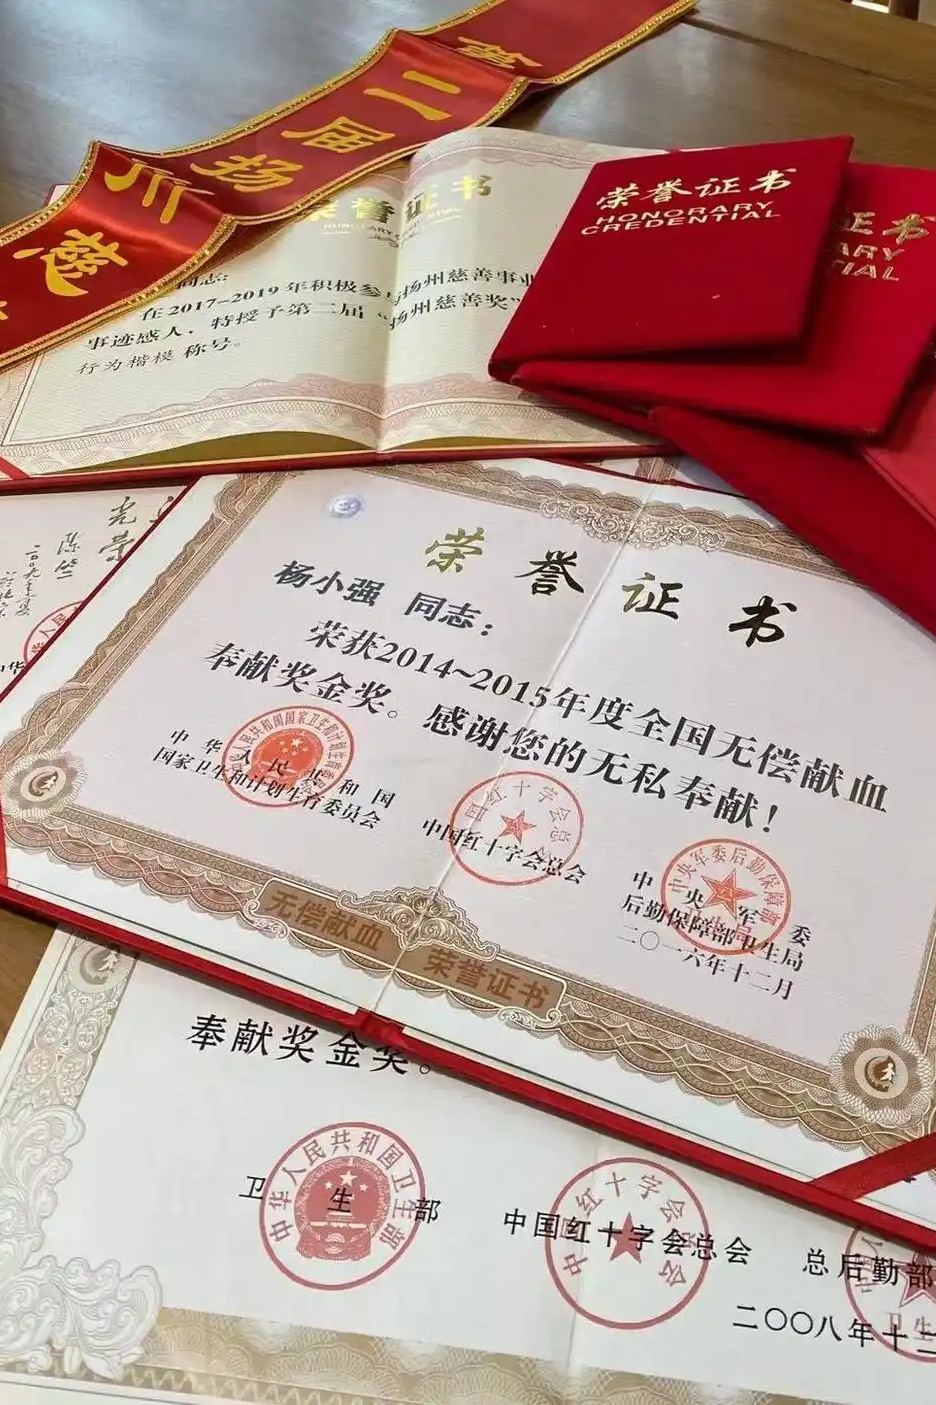 第二届扬州慈
荣誉证书
同志:
在2017-2019年积极参与扬州慈善事业
事迹感人,特授予第二届“扬州慈善奖”
行为楷模 称号。
荣誉证书
HONORARY
CREDENTIAL
证书
ARY
TIAL
光荣
荣誉证书
杨小强 同志:
荣获2014~2015年度全国无偿献血
奉献奖金奖。感谢您的无私奉献!
中华人民共和国
国家卫生和计划生育委员会
中国红十字会总会
中央军委
后勤保障部卫生局
二〇一六年十二月
无偿献血 荣誉证书
奉献奖金奖。
卫生部
中华人民共和国卫生部
中国红十字会总会
中国红十字会总会
总后勤部
二〇〇八年十二